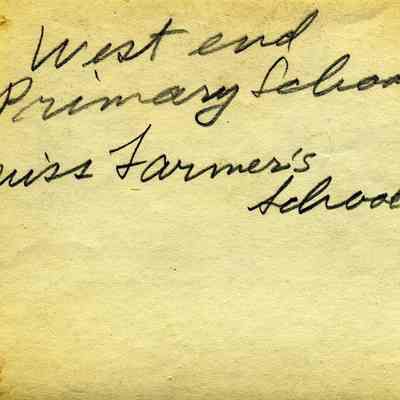 West end
Primary School
Miss Farmer's
School